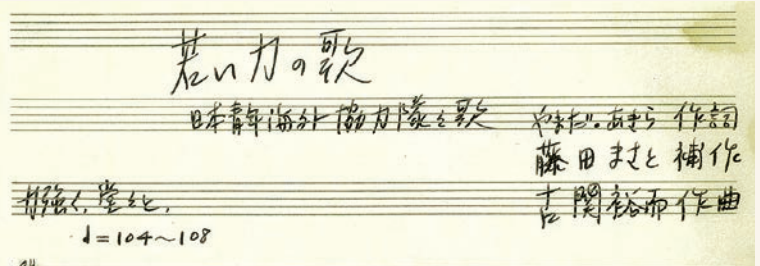 若い力の歌
日本青年海外協力隊之歌
やまだ・あきら 作詞
藤田まさと 補作
古関裕而 作曲
力強く、堂々と、
♩=104〜108